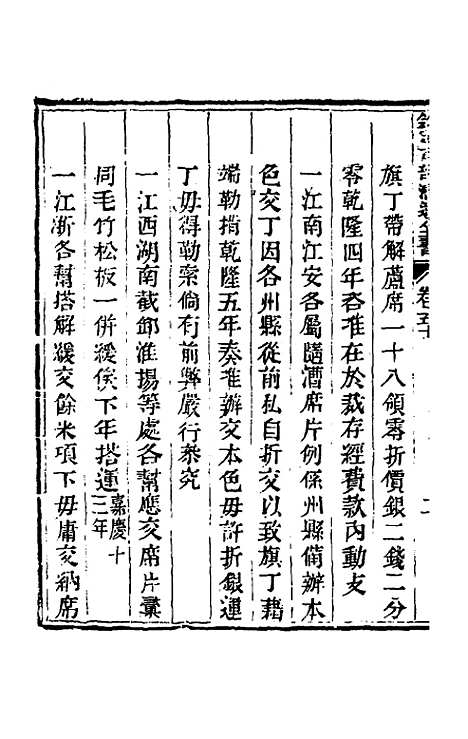 旗丁帶解蘆席一十八領零折價銀二錢二分
零乾隆四年咨准在於裁存經費款內動支
一江南江安各屬隨漕席片例係州縣備辦本
色交丁因各州縣從前私自折交以致旗丁藉
端勒掯乾隆五年奏准辦交本色毋許折銀運
丁毋得勒索倘有前弊嚴行叅究
一江西湖南截卸淮揚等處各幫應交席片彚
同毛竹松板一併緩俟下年搭運嘉慶十三年
一江浙各幫搭解緩交餘米項下毋庸交納席